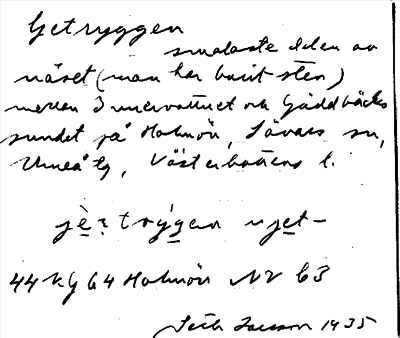 Getryggen
smalaste delen av
näset (man har burit sten)
mellan Innervattnet och Gäddbäcks
sundet på Holmön, Sävars sn,
Umeå tg, Västerbottens l.
44 Kg 64 Holmön NV 63
1935